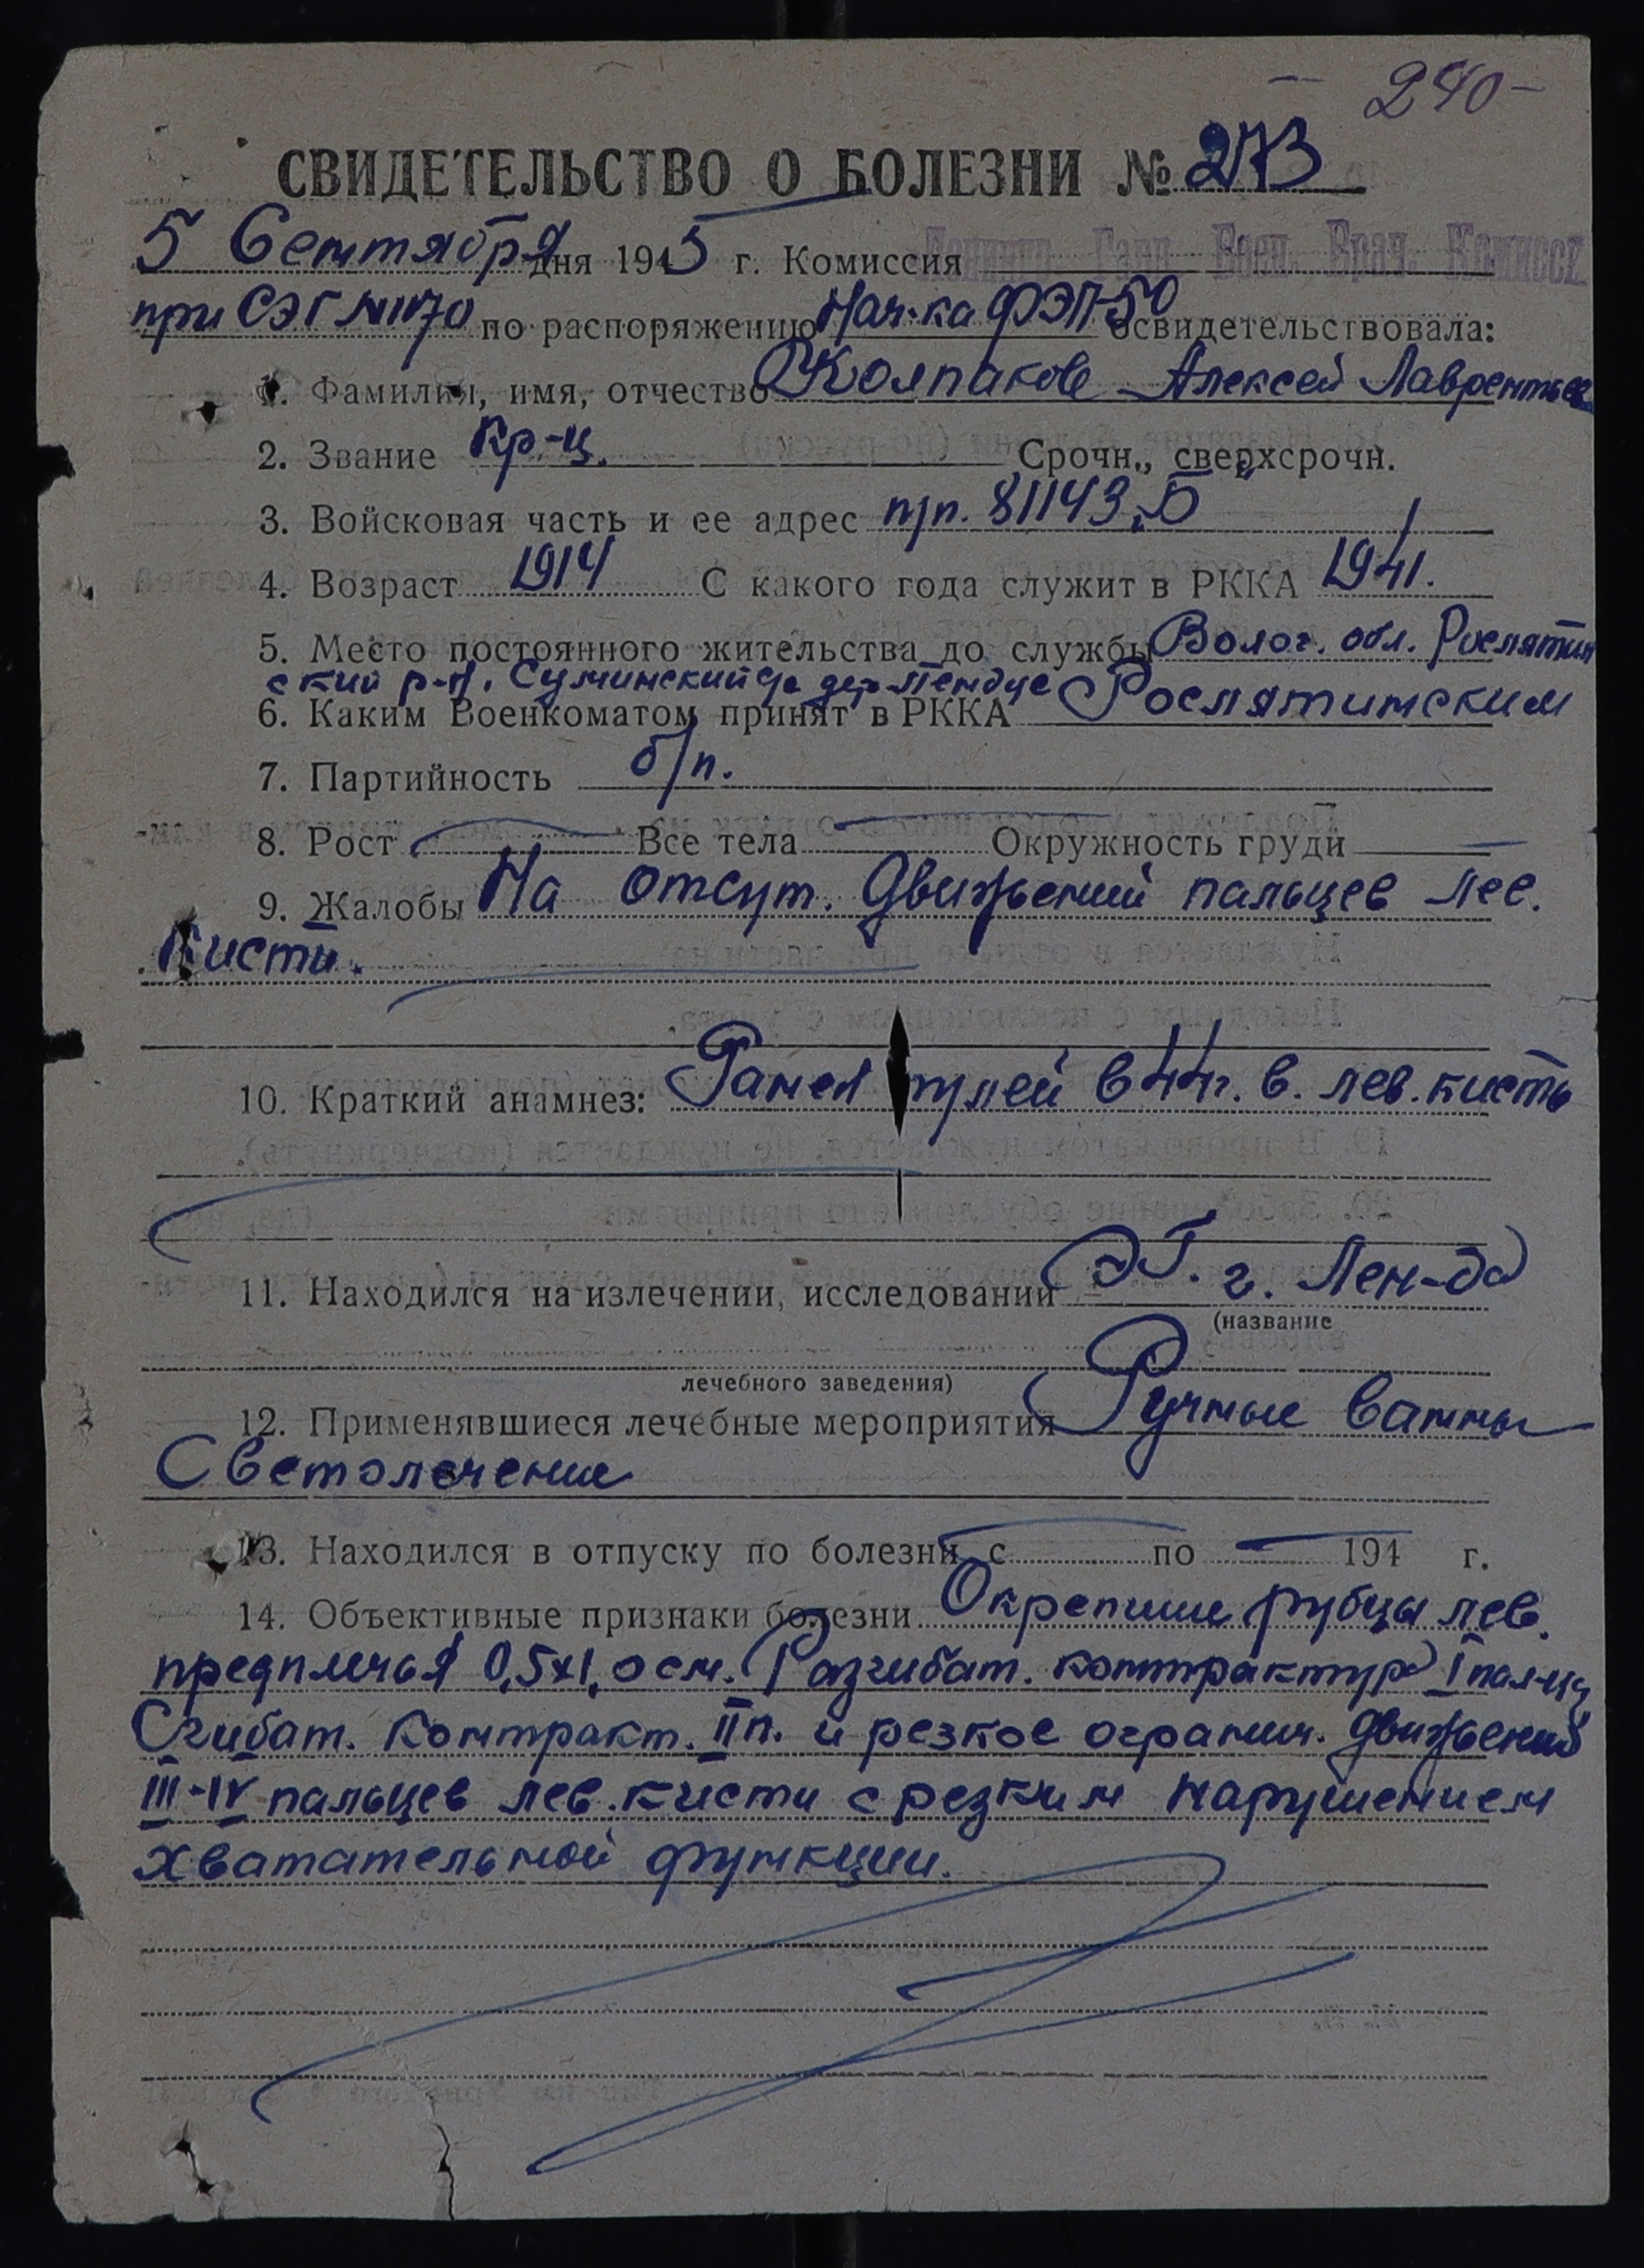 — 240 —
СВИДЕТЕЛЬСТВО О БОЛЕЗНИ № 273
5 Сентября дня 1945 г. Комиссия Ленингр. Гарн. Воен. Врач. Комисси
при СЭГ №1170 по распоряжению Нач-ка ФЭП-50 освидетельствовала:
1. Фамилия, имя, отчество Колпаков Алексей Лаврентьев
2. Звание Кр-ц. Срочн., сверхсрочн.
3. Войсковая часть и ее адрес п/п. 81143 „Б"
4. Возраст 1914 С какого года служит в РККА 1941.
5. Место постоянного жительства до службы Волог. обл. Рослятин
ский р-н. дер.
6. Каким Военкоматом принят в РККА Рослятинским
7. Партийность б/п.
8. Рост Все тела Окружность груди
9. Жалобы На отсут. движений пальцев лев.
кисти.
10. Краткий анамнез: Ранен пулей в 44г. в. лев. кисть
11. Находился на излечении, исследовании ЭГ. г. Лен-да
(название
лечебного заведения)
12. Применявшиеся лечебные мероприятия Ручные ванны
Светолечение
13. Находился в отпуску по болезни с по 194 г.
14. Объективные признаки болезни Окрепшие рубцы лев.
предплечья 0,5х1,0 см. Разгибат. контрактура I пал-ца
Сгибат. контракт. II п. и резкое огранич. движений
III-IV пальцев лев. кисти с резким нарушением
хватательной функции.